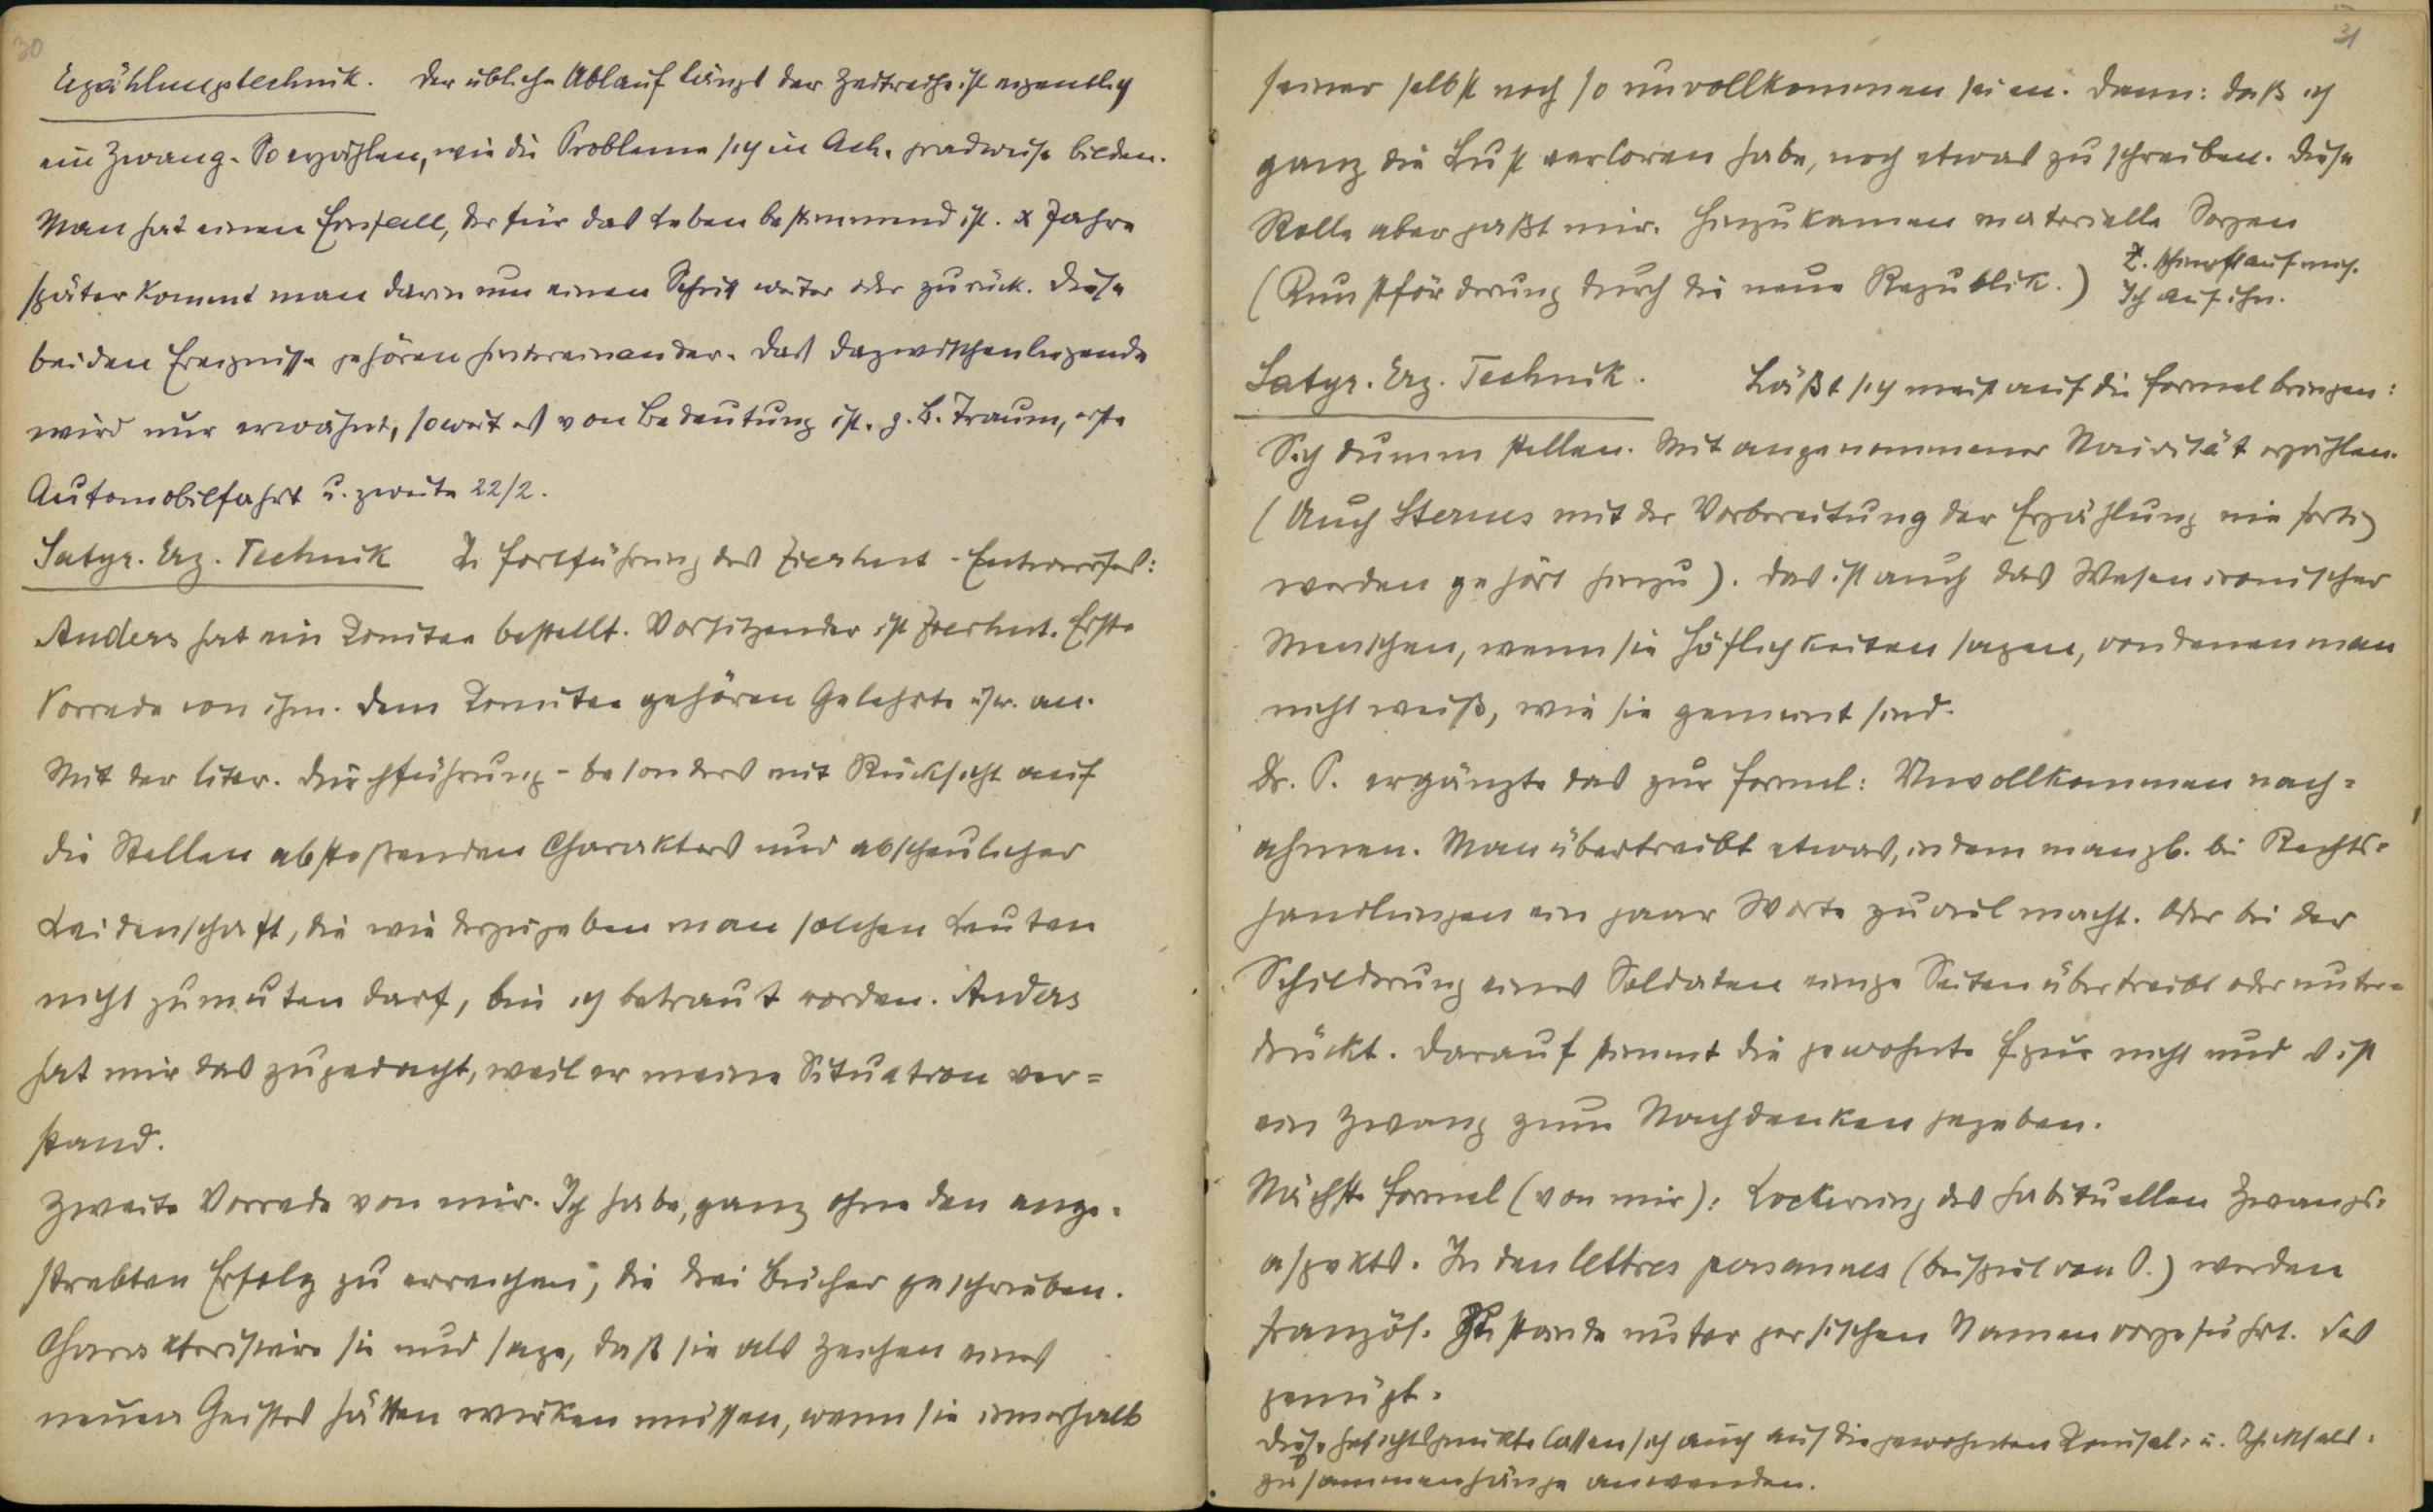 30
Erzählungstechnik. Der übliche Ablauf längs der Zeitreihe ist eigentlich
ein Zwang. So erzählen, wie die Probleme sich in Ach. gradweise bilden.
Man hat einen Einfall, der für das Leben bestimmend ist. x Jahre
später kommt man darin um einen Schritt weiter oder zurück. Diese
beiden Ereignisse gehören hintereinander. Das dazwischenliegende
wird nur erwähnt, soweit es von Bedeutung ist. z. B. Traum, erste
Automobilfahrt u. zweite 22/2.
Satyr. Erz. Technik In Fortführung des Zierhut-Entwurfes:
Anders hat ein Komitee bestellt. Vorsitzender ist Zierhut. Erste
Vorrede von ihm. Dem Komitee gehören Gelehrte usw. an.
Mit der liter. Durchführung - besonders mit Rücksicht auf
die Stellen abstoßenden Charakters und abscheulicher
Leidenschaft, die wiederzugeben man solchen Leuten
nicht zumuten darf, bin ich betraut worden. Anders
hat mir das zugedacht, weil er meine Situation ver=
stand.
Zweite Vorrede von mir. Ich habe, ganz ohne den ange-
strebten Erfolg zu erreichen, die drei Bücher geschrieben.
Charakterisiere sie und sage, daß sie als Zeichen eines
neuen Geistes hätten wirken müssen, wenn sie innerhalb
31
seiner selbst noch so unvollkommen seien. Dann: daß ich
ganz die Lust verloren habe, noch etwas zu schreiben. Diese
Rolle aber paßt mir. Hinzukamen materielle Sorgen
(Kunstförderung durch die neue Republik.) Z. schimpft auf mich.
Ich auf ihn.
Satyr. Erz. Technik. Läßt sich meist auf die Formel bringen:
Sich dumm stellen. Mit angenommener Naivität erzählen.
(Auch Sternes mit der Vorbereitung der Erzählung nie fertig
werden gehört hinzu). Das ist auch das Wesen ironischer
Menschen, wenn sie Höflichkeiten sagen, von denen man
nicht weiß, wie sie gemeint sind.
Dr. P. ergänzte das zur Formel: Unvollkommen nach=
ahmen. Man übertreibt etwas, indem man zb. bei Rechts-
handlungen ein paar Worte zuviel macht. Oder bei der
Schilderung eines Soldaten einige Seiten übertreibt oder unter-
drückt. Darauf stimmt die gewohnte Figur nicht und es ist
ein Zwang zum Nachdenken gegeben.
Nächste Formel (von mir): Lockerung des habituellen Zwangs-
aspekts. In den lettres persannes (Beispiel von P.) werden
französ. Zustände unter persischen Namen vorgeführt. Das
genügt.
Diese Gesichtspunkte lassen sich auch auf die gewohnten Kausal- u. Schicksals-
zusammenhänge anwenden.